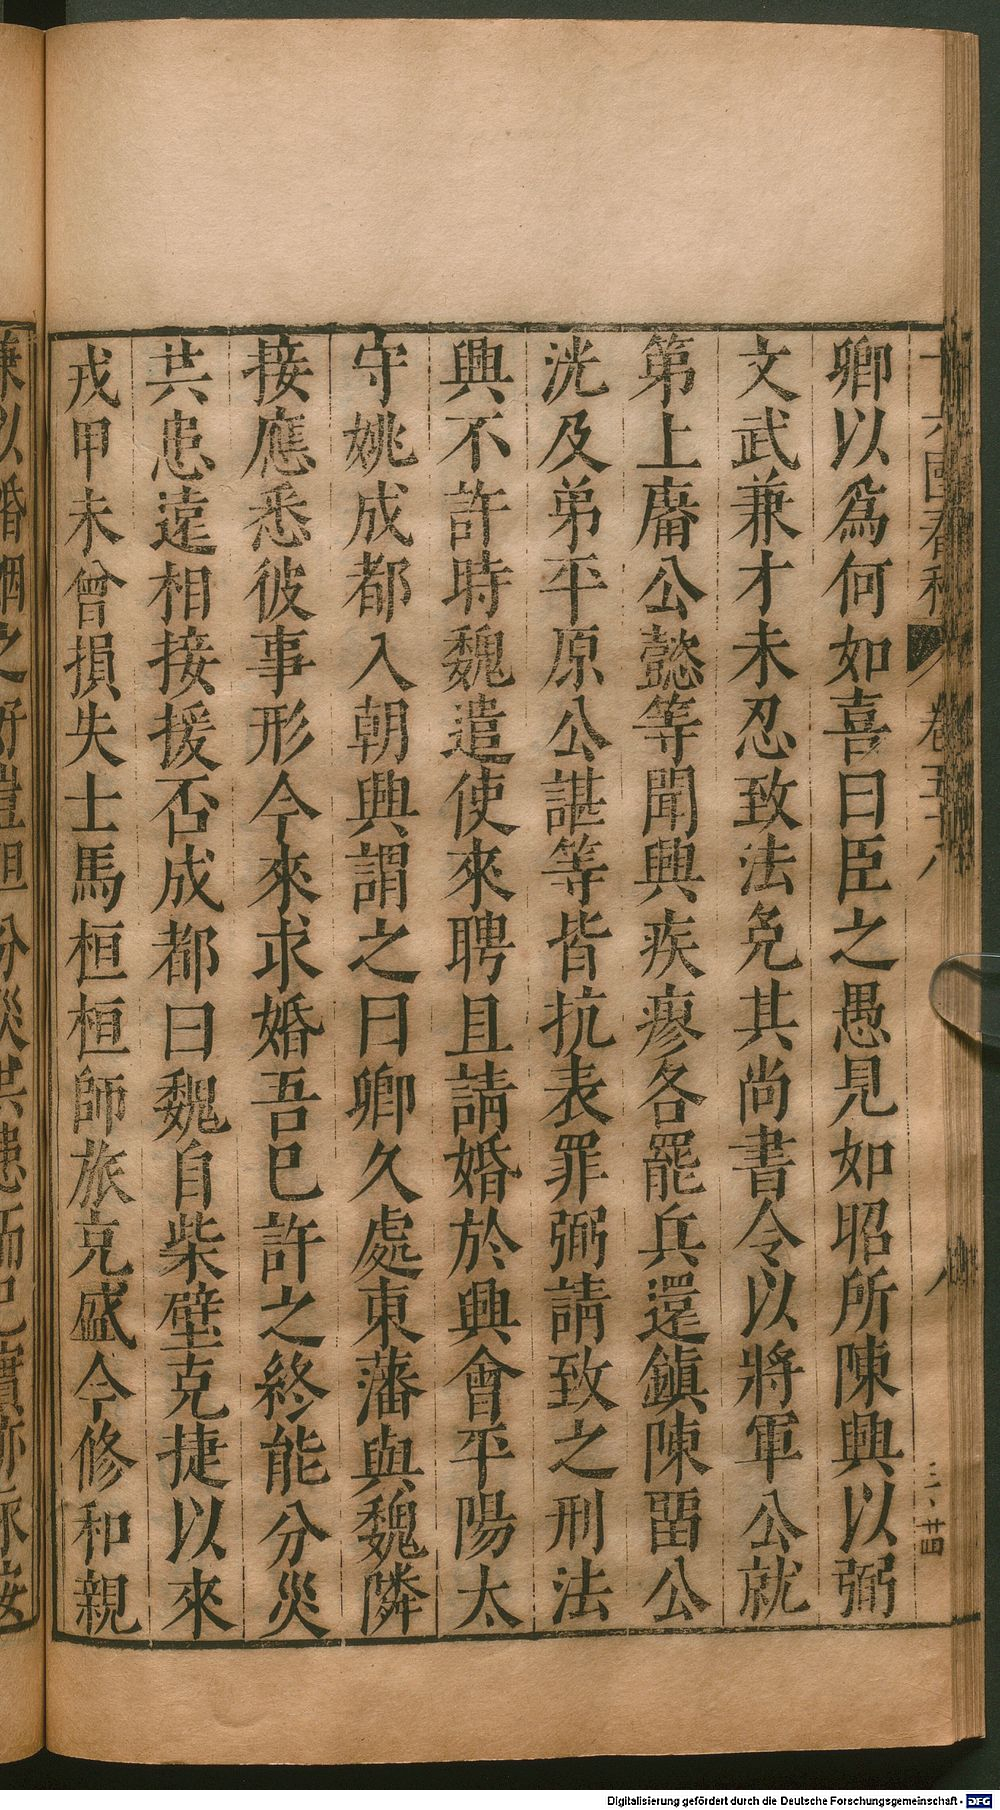 卿以爲何如喜曰臣之愚見如昭所陳興以弼
文武兼才未忍致法免其尚書令以將軍公就
第上庸公懿等聞興疾瘳各罷兵還鎮陳留公
洸及弟平原公諶等皆抗表罪弼請致之刑法
興不許時魏遣使來聘且請婚於興會平陽太
守姚成都入朝興謂之曰卿久處東藩與魏隣
接應悉彼事形今來求婚吾已許之終能分災
共患遠相接援否成都曰魏自柴壁克捷以來
戎甲未曾損失士馬桓桓師旅克盛今修和親
兼以婚姻之好豈但分災共患而已實亦永安
Digitalisierung gefördert durch die Deutsche Forschungsgemeinschaft - DFG